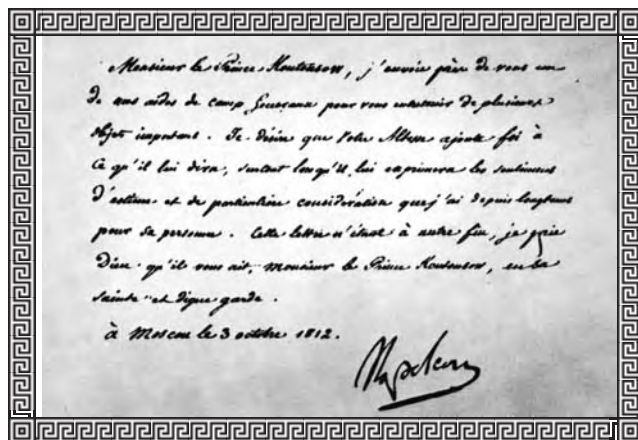 Monsieur le Prince Koutousow, j'envoie près de vous un
de mes aides de camp généraux pour vous entretenir de plusieurs
objets importans. Je désire que Votre Altesse ajoute foi à
ce qu'il lui dira, surtout lorsqu'il lui exprimera les sentimens
d'estime et de particulière considération que j'ai depuis longtems
pour sa personne. Cette lettre n'étant à autre fin, je prie
Dieu qu'il vous ait, Monsieur le Prince Koutousow, en sa
sainte et digne garde.
à Moscou le 3 octobre 1812.
Napoleon